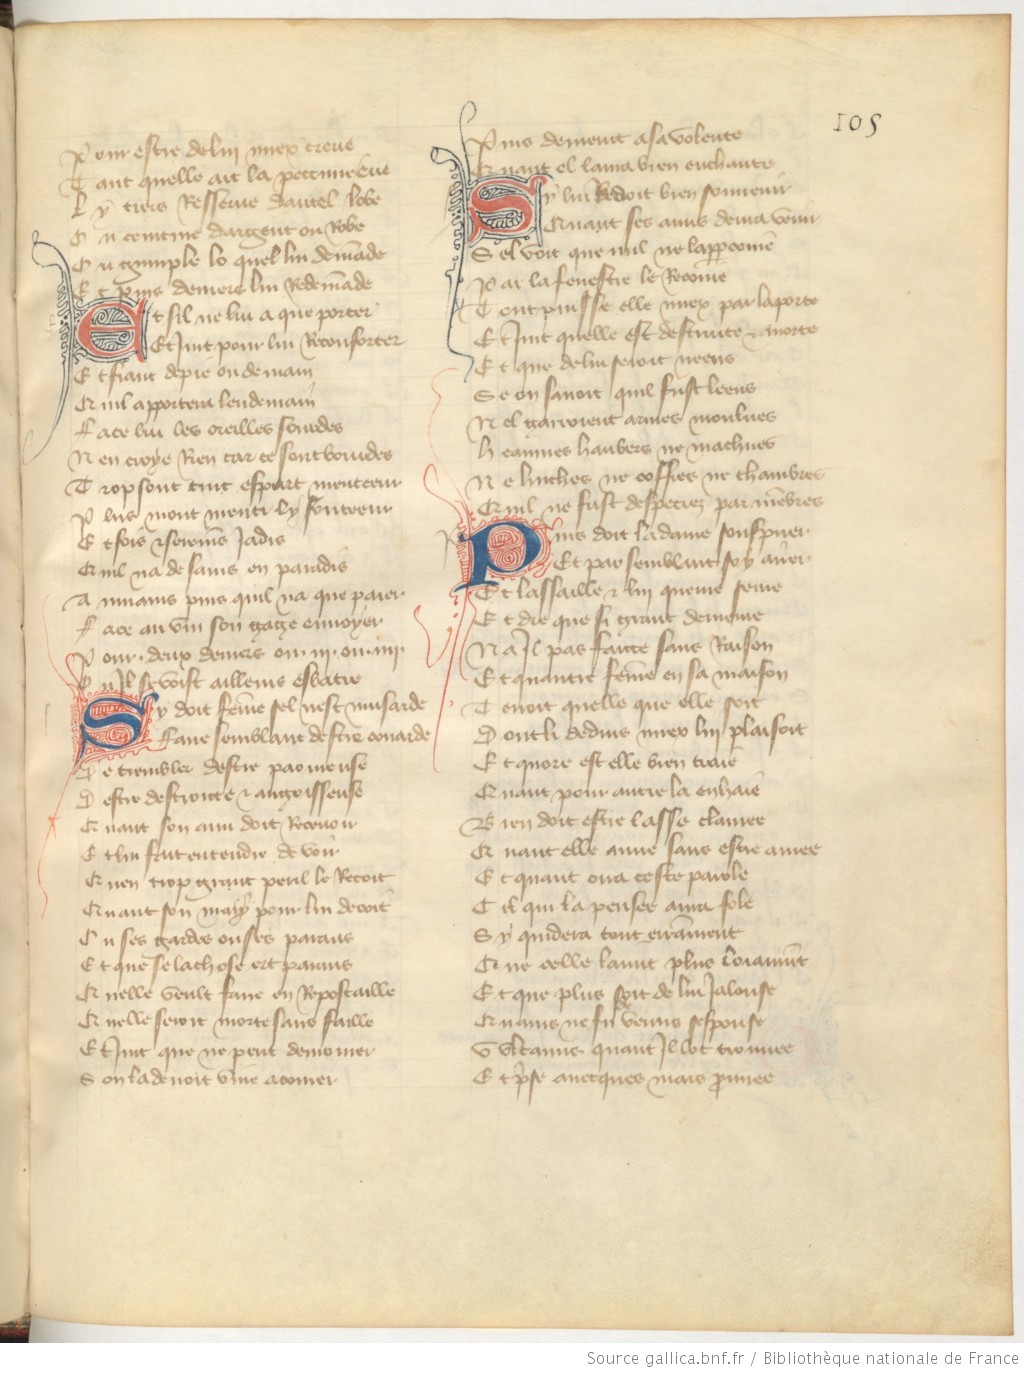 105
Pour estre de lui miex creue
Tant quelle ait la peccune eue
Ly tiers Resserue dautel lobe
Ou ceinture dargent ou Robe
Ou guimple lo quel lui demāde
Et puis deniers lui Redemāde
Et sil ne lui a que porter
Et Jurt pour lui Reconforter
Et fiant de pie ou de main
Quil apportera lendemain
Face lui les oreilles sourdes
Nen croye Rien car ce sont bourdes
Trop sont tuit espert menteeur
Plus mont menti ly
Et fois et seremēs Jadis
Quil na de sains en paradis
Au mains puis quil na que paier
Face au vin son gaige enuoyer
Pour deux deniers ou iii ou iiii
Ou Jl sen voist ailleurs esbatre
Sy doit fēme sel nest musarde
Faire semblant destre couarde
De trembler destre paoureuse
Destre destroitte et angoisseuse
Quant son ami doit Receuoir
Et lui fait entendre de voir
Quen trop grant peril le Recoit
Quant son mary pour lui decoit
Ou ses gardes ou ses parens
Et que se la chose ert parans
Quelle veult faire en Repostaille
Quelle seroit morte sans faille
Et Jurt que ne peut demourer
Son la deuoit viue acorer
Puis demeurt a sa volente
Quant el laura bien enchante
Sy lui Redoit bien souuenir
Quant ses amis deura venir
Sel voit que nul ne lappercoiue
Par la fenestre le Recoiue
Tout puisse elle miex par la porte
Et Jurt quelle est destruite et morte
Et que de lui seroit neens
Se on sauoit quil fust leens
Nel garroient armes moulues
Heaumes haubers ne machues
Ne huches ne coffres ne chambres
Quil ne fust despeciez par mēbres
Puis doit la dame souspirer
Et par semblant soy airer
Et lassaille et lui queure seure
Et die que si grant demeure
Na Jl pas faitte sans Raison
Et quautre fēme en sa maison
Tenoit quelle que elle soit
Dont li deduis miex lui plaisoit
Et quore est elle bien traie
Quant pour autre la enhaie
Bien doit estre lasse clamee
Quant elle aime sans estre amee
Et quant orra ceste parole
Cil qui la pensee aura fole
Sy quidera tout errāment
Que celle laint plus loiaumēt
Et que plus soit de lui Jalouse
Quains ne fu venus sespouse
Vulcanus quant Jl lot trouuee
Et prise auecques mars prouuee
Source gallica.bnf.fr / Bibliothèque nationale de France